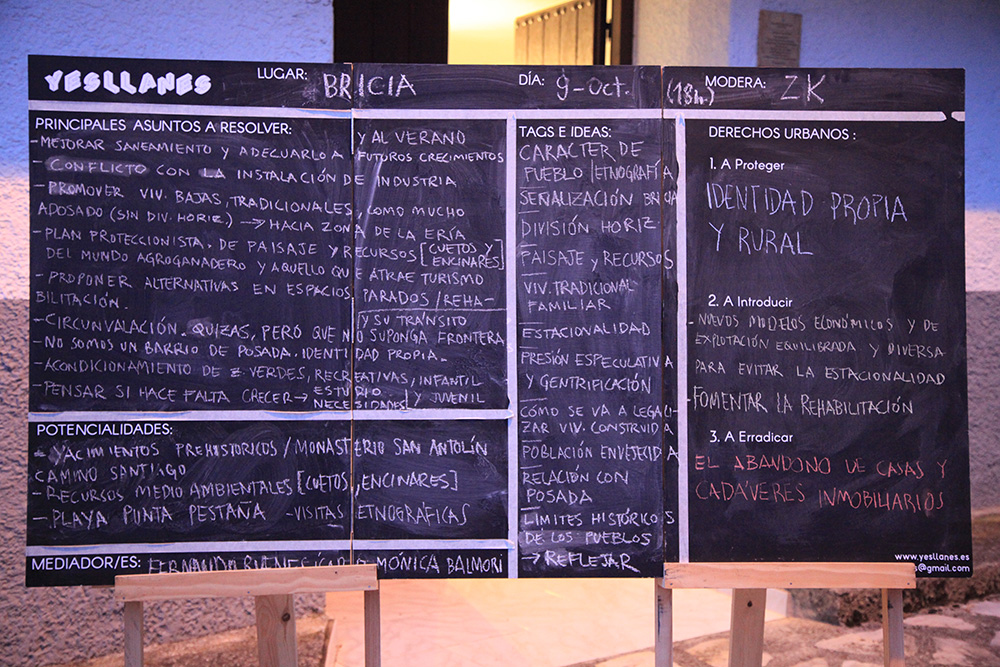 YESLLANES LUGAR: BRICIA DÍA: 9-Oct. (18h.) MODERA: ZK
PRINCIPALES ASUNTOS A RESOLVER:
- MEJORAR SANEAMIENTO Y ADECUARLO A FUTUROS CRECIMIENTOS
Y AL VERANO
- CONFLICTO CON LA INSTALACIÓN DE INDUSTRIA
- PROMOVER VIV. BAJAS, TRADICIONALES, COMO MUCHO
ADOSADO (SIN DIV. HORIZ.) → HACIA ZONA DE LA ERÍA
- PLAN PROTECCIONISTA, DE PAISAJE Y RECURSOS [CUETOS Y
ENCINARES]
DEL MUNDO AGROGANADERO Y AQUELLO QUE ATRAE TURISMO
- PROPONER ALTERNATIVAS EN ESPACIOS PARADOS / REHA-
BILITACIÓN.
- CIRCUNVALACIÓN. QUIZAS, PERÓ QUE NO SUPONGA FRONTERA
Y SU TRÁNSITO
- NO SOMOS UN BARRIO DE POSADA. IDENTIDAD PROPIA.
- ACONDICIONAMIENTO DE Z VERDES, RECREATIVAS, INFANTIL
Y JUVENIL
- PENSAR SI HACE FALTA CRECER → ESTUDIO
NECESIDADES
POTENCIALIDADES:
- YACIMIENTOS PREHISTÓRICOS / MONASTERIO SAN ANTOLÍN
CAMINO SANTIAGO
- RECURSOS MEDIO AMBIENTALES [CUETOS, ENCINARES]
- PLAYA PUNTA PESTAÑA - VISITAS ETNOGRÁFICAS
MEDIADOR/ES: FERNANDO MÓNICA BALMORI
TAGS E IDEAS:
CARACTER DE
PUEBLO / ETNOGRAFÍA
SEÑALIZACIÓN BRICIA
DIVISIÓN HORIZ
PAISAJE Y RECURSOS
VIV. TRADICIONAL
FAMILIAR
ESTACIONALIDAD
PRESIÓN ESPECULATIVA
Y GENTRIFICACIÓN
CÓMO SE VA A LEGALI-
ZAR VIV. CONSTRUIDA
POBLACIÓN ENVEJECIDA
RELACIÓN CON
POSADA
LÍMITES HISTÓRICOS
DE LOS PUEBLOS
→ REFLEJAR
DERECHOS URBANOS :
1. A Proteger
IDENTIDAD PROPIA
Y RURAL
2. A Introducir
- NUEVOS MODELOS ECONÓMICOS Y DE
EXPLOTACIÓN EQUILIBRADA Y DIVERSA
PARA EVITAR LA ESTACIONALIDAD
- FOMENTAR LA REHABILITACIÓN
3. A Erradicar
EL ABANDONO DE CASAS Y
CADÁVERES INMOBILIARIOS
www.yesllanes.es
s@gmail.com